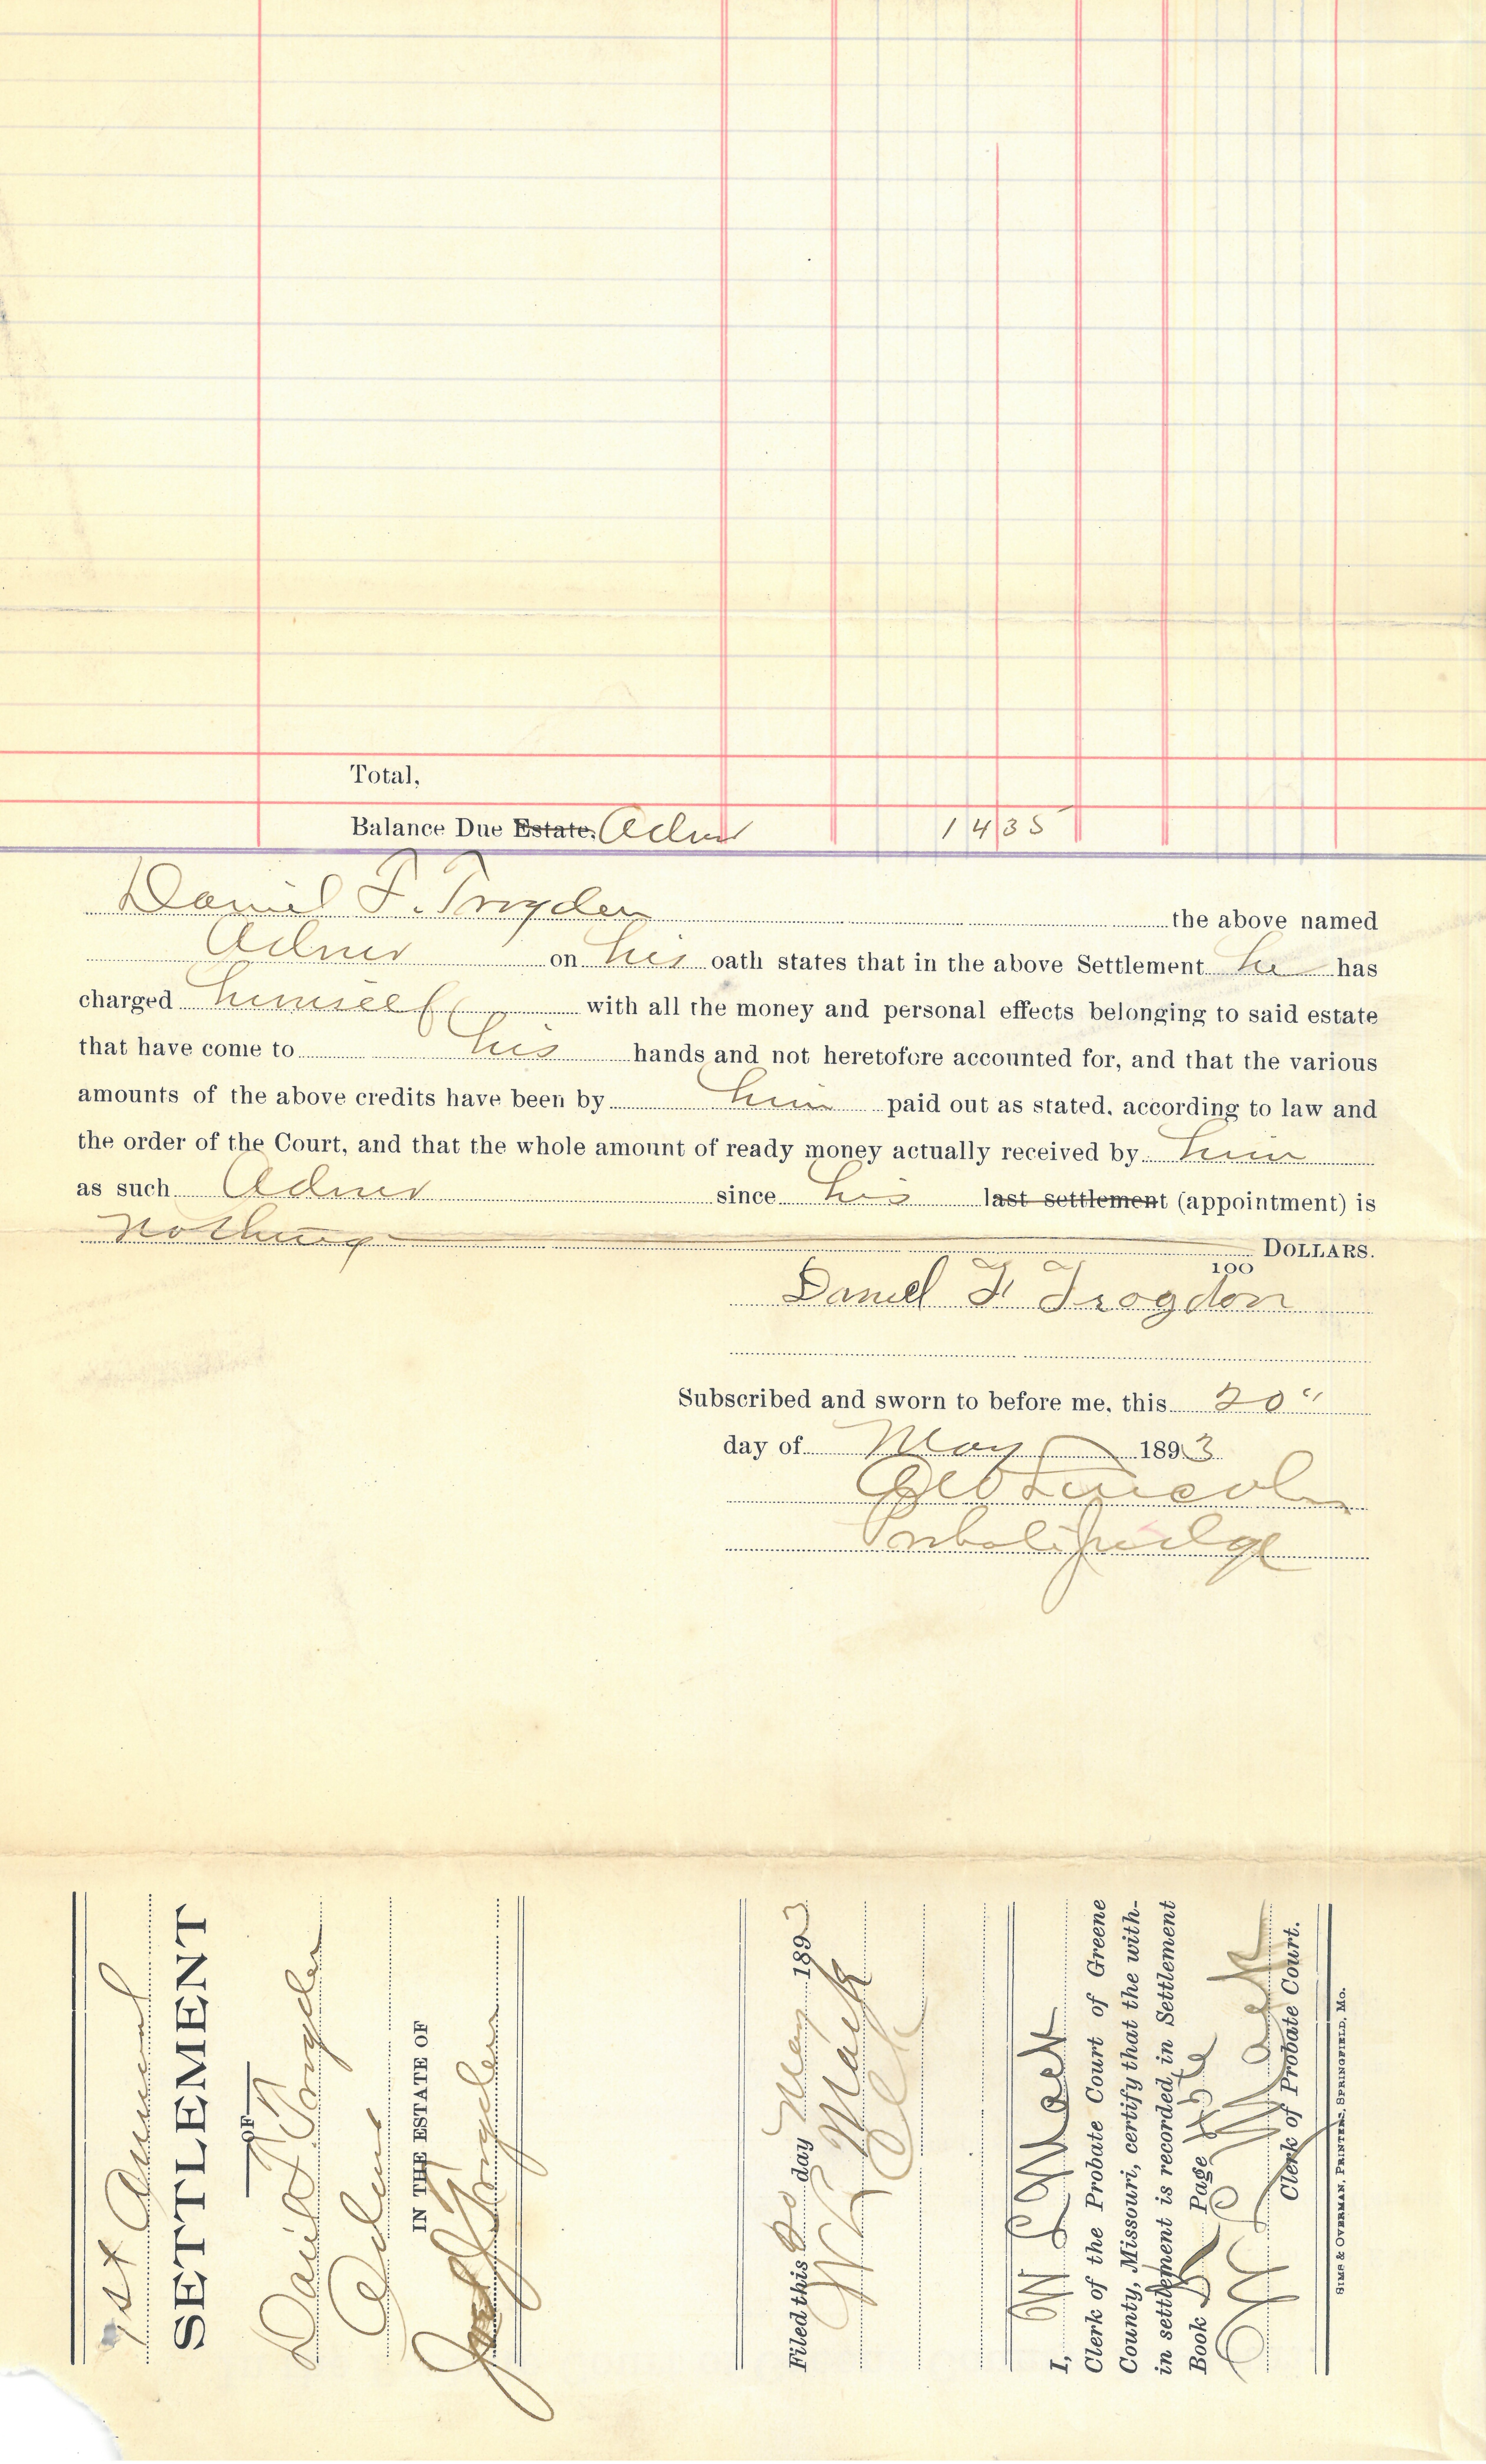 Total,
Balance Due Estate. Admr 14 35
Daniel F. Trogden the above named
Admr on his oath states that in the above Settlement he has
charged himself with all the money and personal effects belonging to said estate
that have come to his hands and not heretofore accounted for, and that the various
amounts of the above credits have been by him paid out as stated, according to law and
the order of the Court, and that the whole amount of ready money actually received by him
as such Admr since his last settlement (appointment) is
nothing DOLLARS.
100
Daniel F Trogdon
Subscribed and sworn to before me, this 20"
day of May 1893
Lincoln
Probate Judge
1st Annual
SETTLEMENT
OF
Daniel F. Trogden
Admr
IN THE ESTATE OF
Trogden
Filed this 20 day May 1893
W L Mack
Clk
I, W L Mack
Clerk of the Probate Court of Greene
County, Missouri, certify that the with-
in settlement is recorded in Settlement
Book K Page
W L Mack
Clerk of Probate Court.
SIMS & OVERMAN, PRINTERS, SPRINGFIELD, MO.